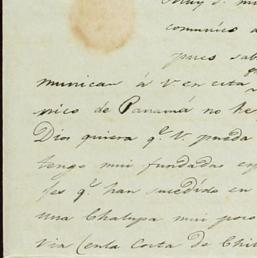 comunico a
pues sab
municar á V. en esta
nico de Panamá no he
Dios quiera q.e V. pueda
tengo mui fundadas es
ses q.e han sucedido en
una Chalupa mui poco
via (en la Costa de Chi